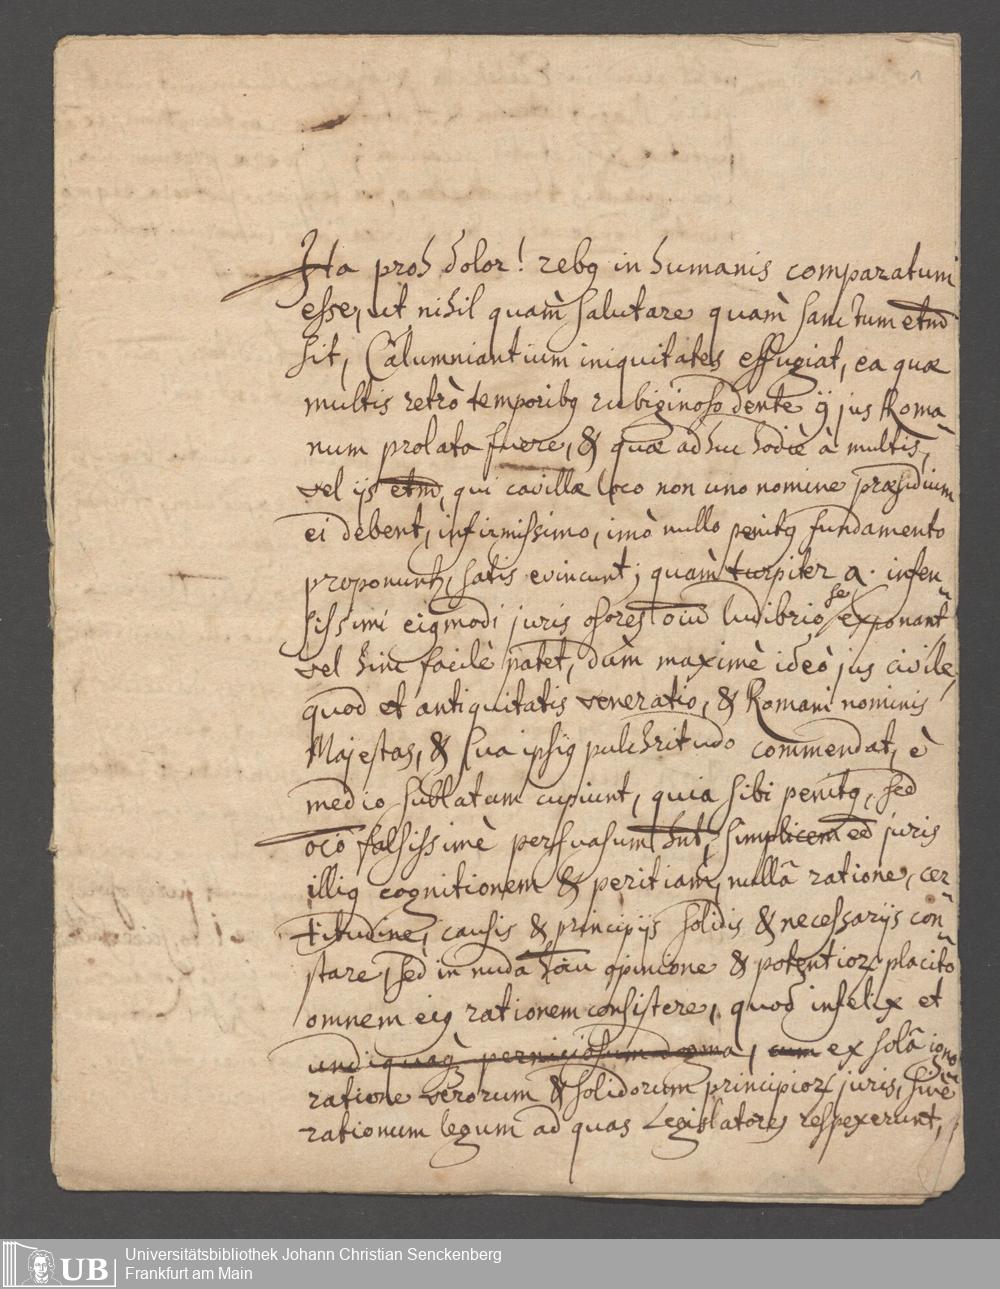 1
Ita proh dolor! rebq in humanis comparatum
esse, ut nihil quàm salutare quàm sanctum etm̄
sit, Calumniantium iniquitates effugiat, ea quæ
multis retrò temporibq rubiginoso dente jus Roma-
num prolata fuere, & quæ adhuc hodiè à multis,
vel ijs etm̄, qui cavillæ loco non uno nomine præsidium
ei debent, infirmissimo, imò nullo penitq fundamento
proponunt, satis evincunt; quàm turpiter a. infen-
sissimi eiqmodi juris osores ludibrio se exponant
vel hinc facilè patet, dùm maximè ideò jus civile,
quod et antiquitatis veneratio, & Romani nominis
Majestas, & sua ipsiq pulchritudo commendat, è
medio sublatum cupiunt, quia sibi penitq, sed
falsissimè persuasum hnt, simplicem eē juris
illiq cognitionem & peritiam, nullâ ratione, cer-
titudine, causis & principijs solidis & necessarijs con-
stare, sed in nuda opinione & potentior placito
omnem eiq rationem consistere, quod infelix et
undiquaq perniciosum dogma, cum ex solâ igno-
ratione verorum & solidorum principior juris, sive
rationum legum ad quas Legislatores respexerunt,
UB
Universitätsbibliothek Johann Christian Senckenberg
Frankfurt am Main